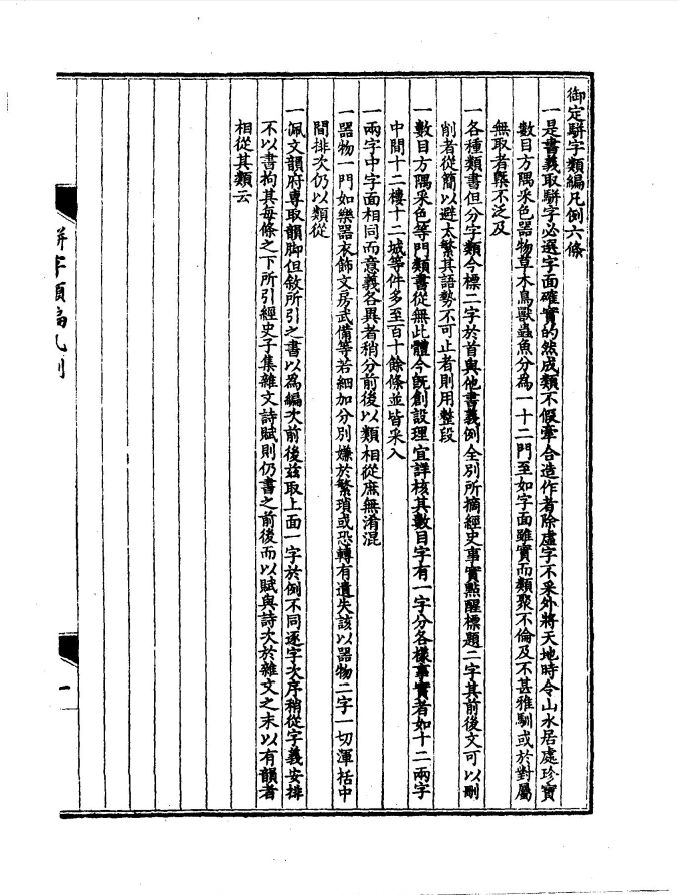 御定駢字類編凡例六條
一是書義取駢字必選字面確實的然成類不假牽合造作者除虛字不采外將天地時令山水居處珍寶
數目方隅采色器物草木鳥獸蟲魚分為一十二門至如字面雖實而類聚不倫及不甚雅馴或於對屬
無取者槩不泛及
一各種類書但分字類今標二字於首與他書義例全別所摘經史事實點醒標題二字其前後文可以刪
削者從簡以避太繁其語勢不可止者則用整段
一數目方隅采色等門類書從無此體今旣創設理宜詳核其數目字有一字分各樣事實者如十二兩字
中間十二樓十二城等件多至百十餘條並皆采入
一兩字中字面相同而意義各異者稍分前後以類相從庶無淆混
一器物一門如樂器衣飾文房武備等若細加分別嫌於繁瑣或恐轉有遺失該以器物二字一切渾括中
間排次仍以類從
一佩文韻府專取韻脚但敘所引之書以為編次前後兹取上面一字於例不同逐字次序稍從字義安排
不以書拘其每條之下所引經史子集雜文詩賦則仍書之前後而以賦與詩次於雜文之末以有韻者
相從其類云
駢字類編凡例
一